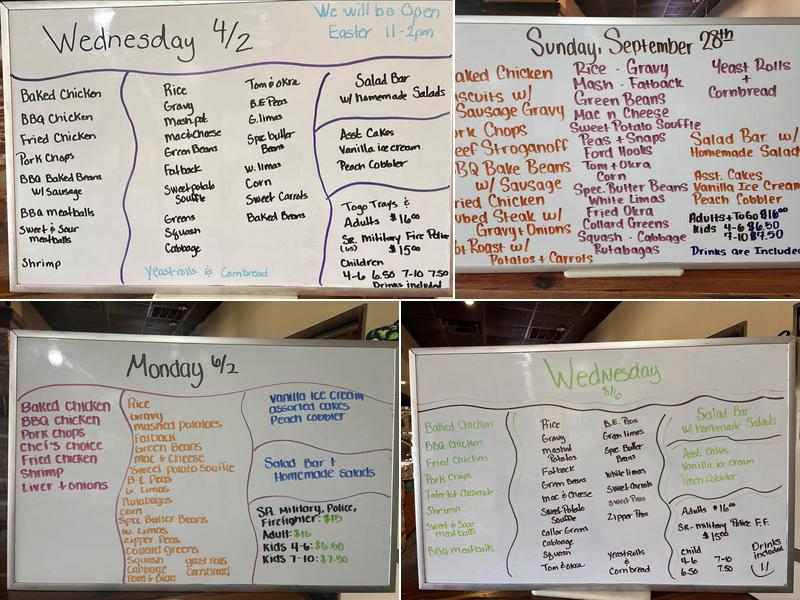 Wednesday 4/2
We will be Open
Easter 11-2pm
Baked Chicken
BBQ Chicken
Fried Chicken
Pork Chops
BBQ Baked Beans
w/ Sausage
BBQ meatballs
Sweet & Sour
meatballs
Shrimp
Rice
Gravy
Mash.pot
mac&cheese
Green Beans
Fatback
Sweet potato
Souffle
Greens
Squash
Cabbage
Tom & okra
B.E Peas
G.limas
Spec.butter
Beans
W.limas
Corn
Sweet Carrots
Baked Beans
Yeast rolls & Cornbread
Salad Bar
w/ Homemade Salads
Asst. Cakes
Vanilla ice cream
Peach Cobbler
Togo Trays &
Adults $16.00
SR. Military Fire Police
(US) $15.00
Children
4-6 6.50 7-10 7.50
Drinks included
Sunday, September 28th
aked Chicken
iscuits w/
Sausage Gravy
ork Chops
eef Stroganoff
BQ Bake Beans
w/ Sausage
ried Chicken
ubed Steak w/
Gravy + Onions
ot Roast w/
Potatos + Carrots
Rice - Gravy
Mash - Fatback
Green Beans
Mac n Cheese
Sweet Potato Souffle
Peas + Snaps
Ford Hooks
Tom + Okra
Corn
Spec. Butter Beans
White Limas
Fried Okra
Collard Greens
Squash - Cabbage
Rutabagas
Yeast Rolls
+
Cornbread
Salad Bar w/
Homemade Salad
Asst. Cakes
Vanilla Ice Cream
Peach Cobbler
Adults + To Go $16.00
Kids 4-6 $6.50
7-10 $7.50
Drinks are Include
Monday 6/2
Baked Chicken
BBQ Chicken
Pork Chops
Chef's choice
Fried Chicken
Shrimp
Liver + onions
Rice
Gravy
mashed potatoes
Fatback
Green Beans
mac & cheese
Sweet potato Souffle
B-E Peas
G. Limas
Rutabagas
corn
Spec Butter Beans
w. Limas
Zipper Peas
collard greens
Squash yeast rolls
Cabbage Cornbread
Tom & Okra
Vanilla Ice cream
assorted cakes
Peach cobbler
Salad Bar +
Homemade salads
SR. Military, Police,
Firefighter: $15
Adult: $16
Kids 4-6: $6.50
Kids 7-10: $7.50
Wednesday
8/6
Baked Chicken
BBQ Chicken
Fried Chicken
Pork Chops
Tater tot Casserole
Shrimp
Sweet & Sour
meatballs
BBQ Meatballs
Rice
Gravy
mashed
Potatos
Fatback
Green Beans
Mac & Cheese
Sweet Potato
Souffle
Collar Greens
Cabbage
Squash
Tom & okra
B.E. Peas
Green limas
Spec Butter
Beans
White limas
Sweet Carrots
Sweet Peas
Zipper Peas
Yeast rolls
&
Cornbread
Salad Bar
w/ Homemade Salads
Asst. Cakes
Vanilla Ice Cream
Peach Cobbler
Adults $16.00
SR. military Police F.F.
$15.00
Child
4-6 7-10
6.50 7.50
Drinks
included